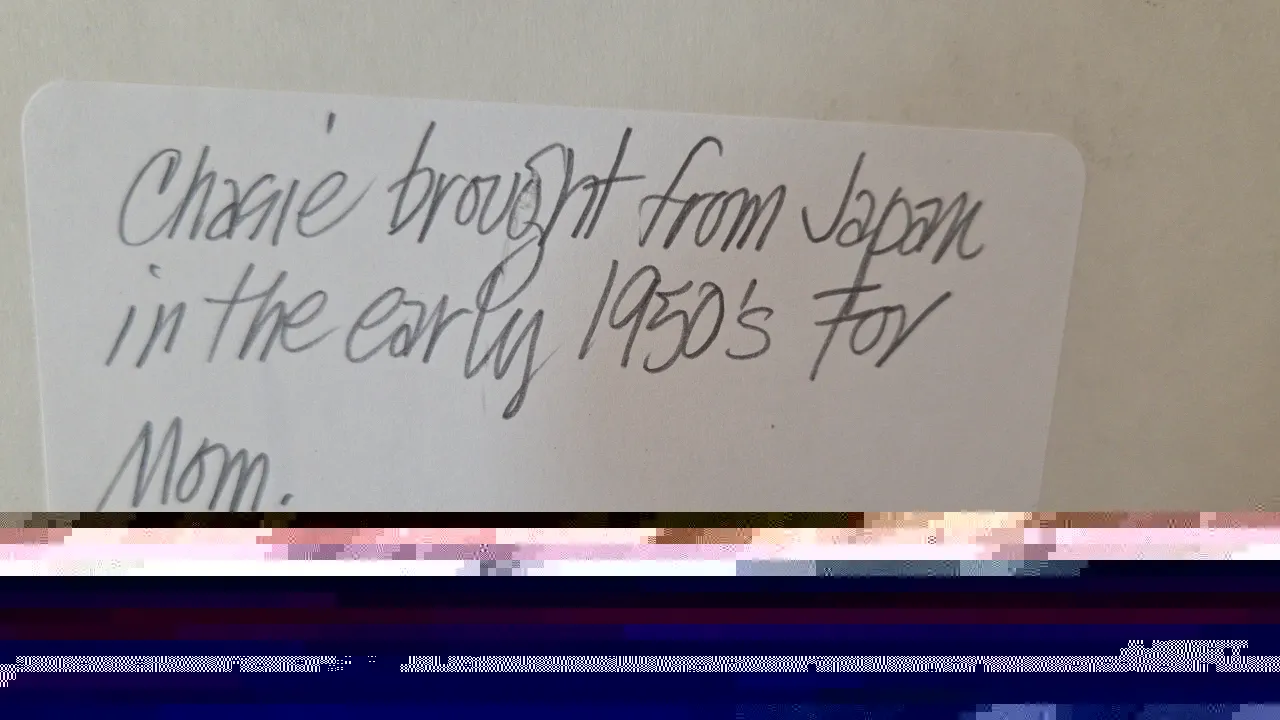 Chasie brought from Japan
in the early 1950's For
Mom.